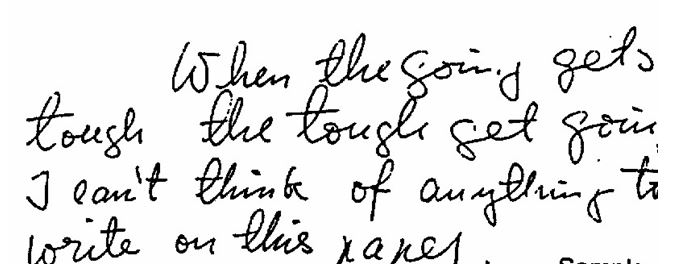 When the going gets
tough the tough get goin
I can't think of anything to
write on this paper